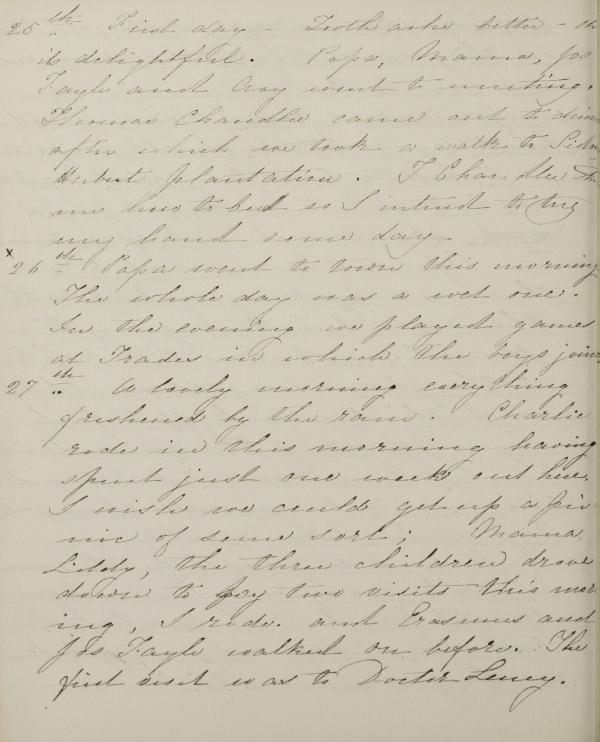 25th First day - Toothache better - oh
its delightful. Papa, Mama, Jos
Fayle and Croy went to meeting.
Thomas Chandlee came out to dinn
after which we took a walk to
Huberts plantation. T Chandlee
me how to bud so I intend to try
my hand some day.
x 26th Papa went to town this morning
The whole day was a wet one.
In the evening we played games
at Trades in which the boys joine
27th A lovely morning everything
freshened by the rain. Charlie
rode in this morning having
spent just one week out here.
I wish we could get up a pic
nic of some sort; Mama
Liddy, the three children drove
down to pay two visits this mor
ing, I rode. and Erasmus and
Jos Fayle walked on before. The
first visit was to Doctor